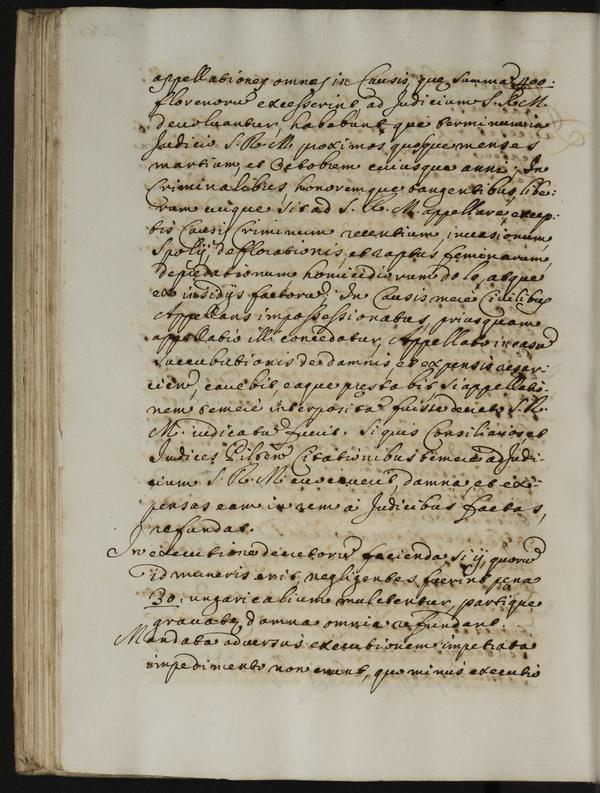 appellationes omnes in Causis, quę summā 400:
florenorū excesserint ad Judicium S. R. M.
devoluantur, habebunt que terminum in
Judicio S. R. M. proximos quosque menses
martium, et Octobrem cuiusque anni. In
Criminalibus honoremque tangentibus libe:
rum cuique sit ad S. R. M. appellare, excep-
tis Causis Criminum recentium, invasionum,
Spolij, deflorationis, et raptus feminarum,
depredationum homicidiorum dolo, atque
ex insidijs factorū. In Causis merè Civilibus
Appellans impossessionatus, priusquam
appellatio illi concedatur, Appellato in casu
succubitionis de damnis, et expensis
cavebit, eaque pręstabit, si appellatio-
nem temerè interpositā fuisse decreto S. R.
M. iudicatū fuerit. Si quis Consiliarios, et
Judices Citationibus temerè ad Judi-
cium S. R. M. evocaverit, damna, et ex-
pensas eam in rem à Judicibus factas,
refundat.
In executione decretorū facienda si ij, quorū
id muneris erit, negligentes fuerint pęna
30: ungaricalium mulctentur, partique
gravatę damna omnia refundant.
Mandata adversus executionem impetrata
impedimento non erunt, quo minus executio